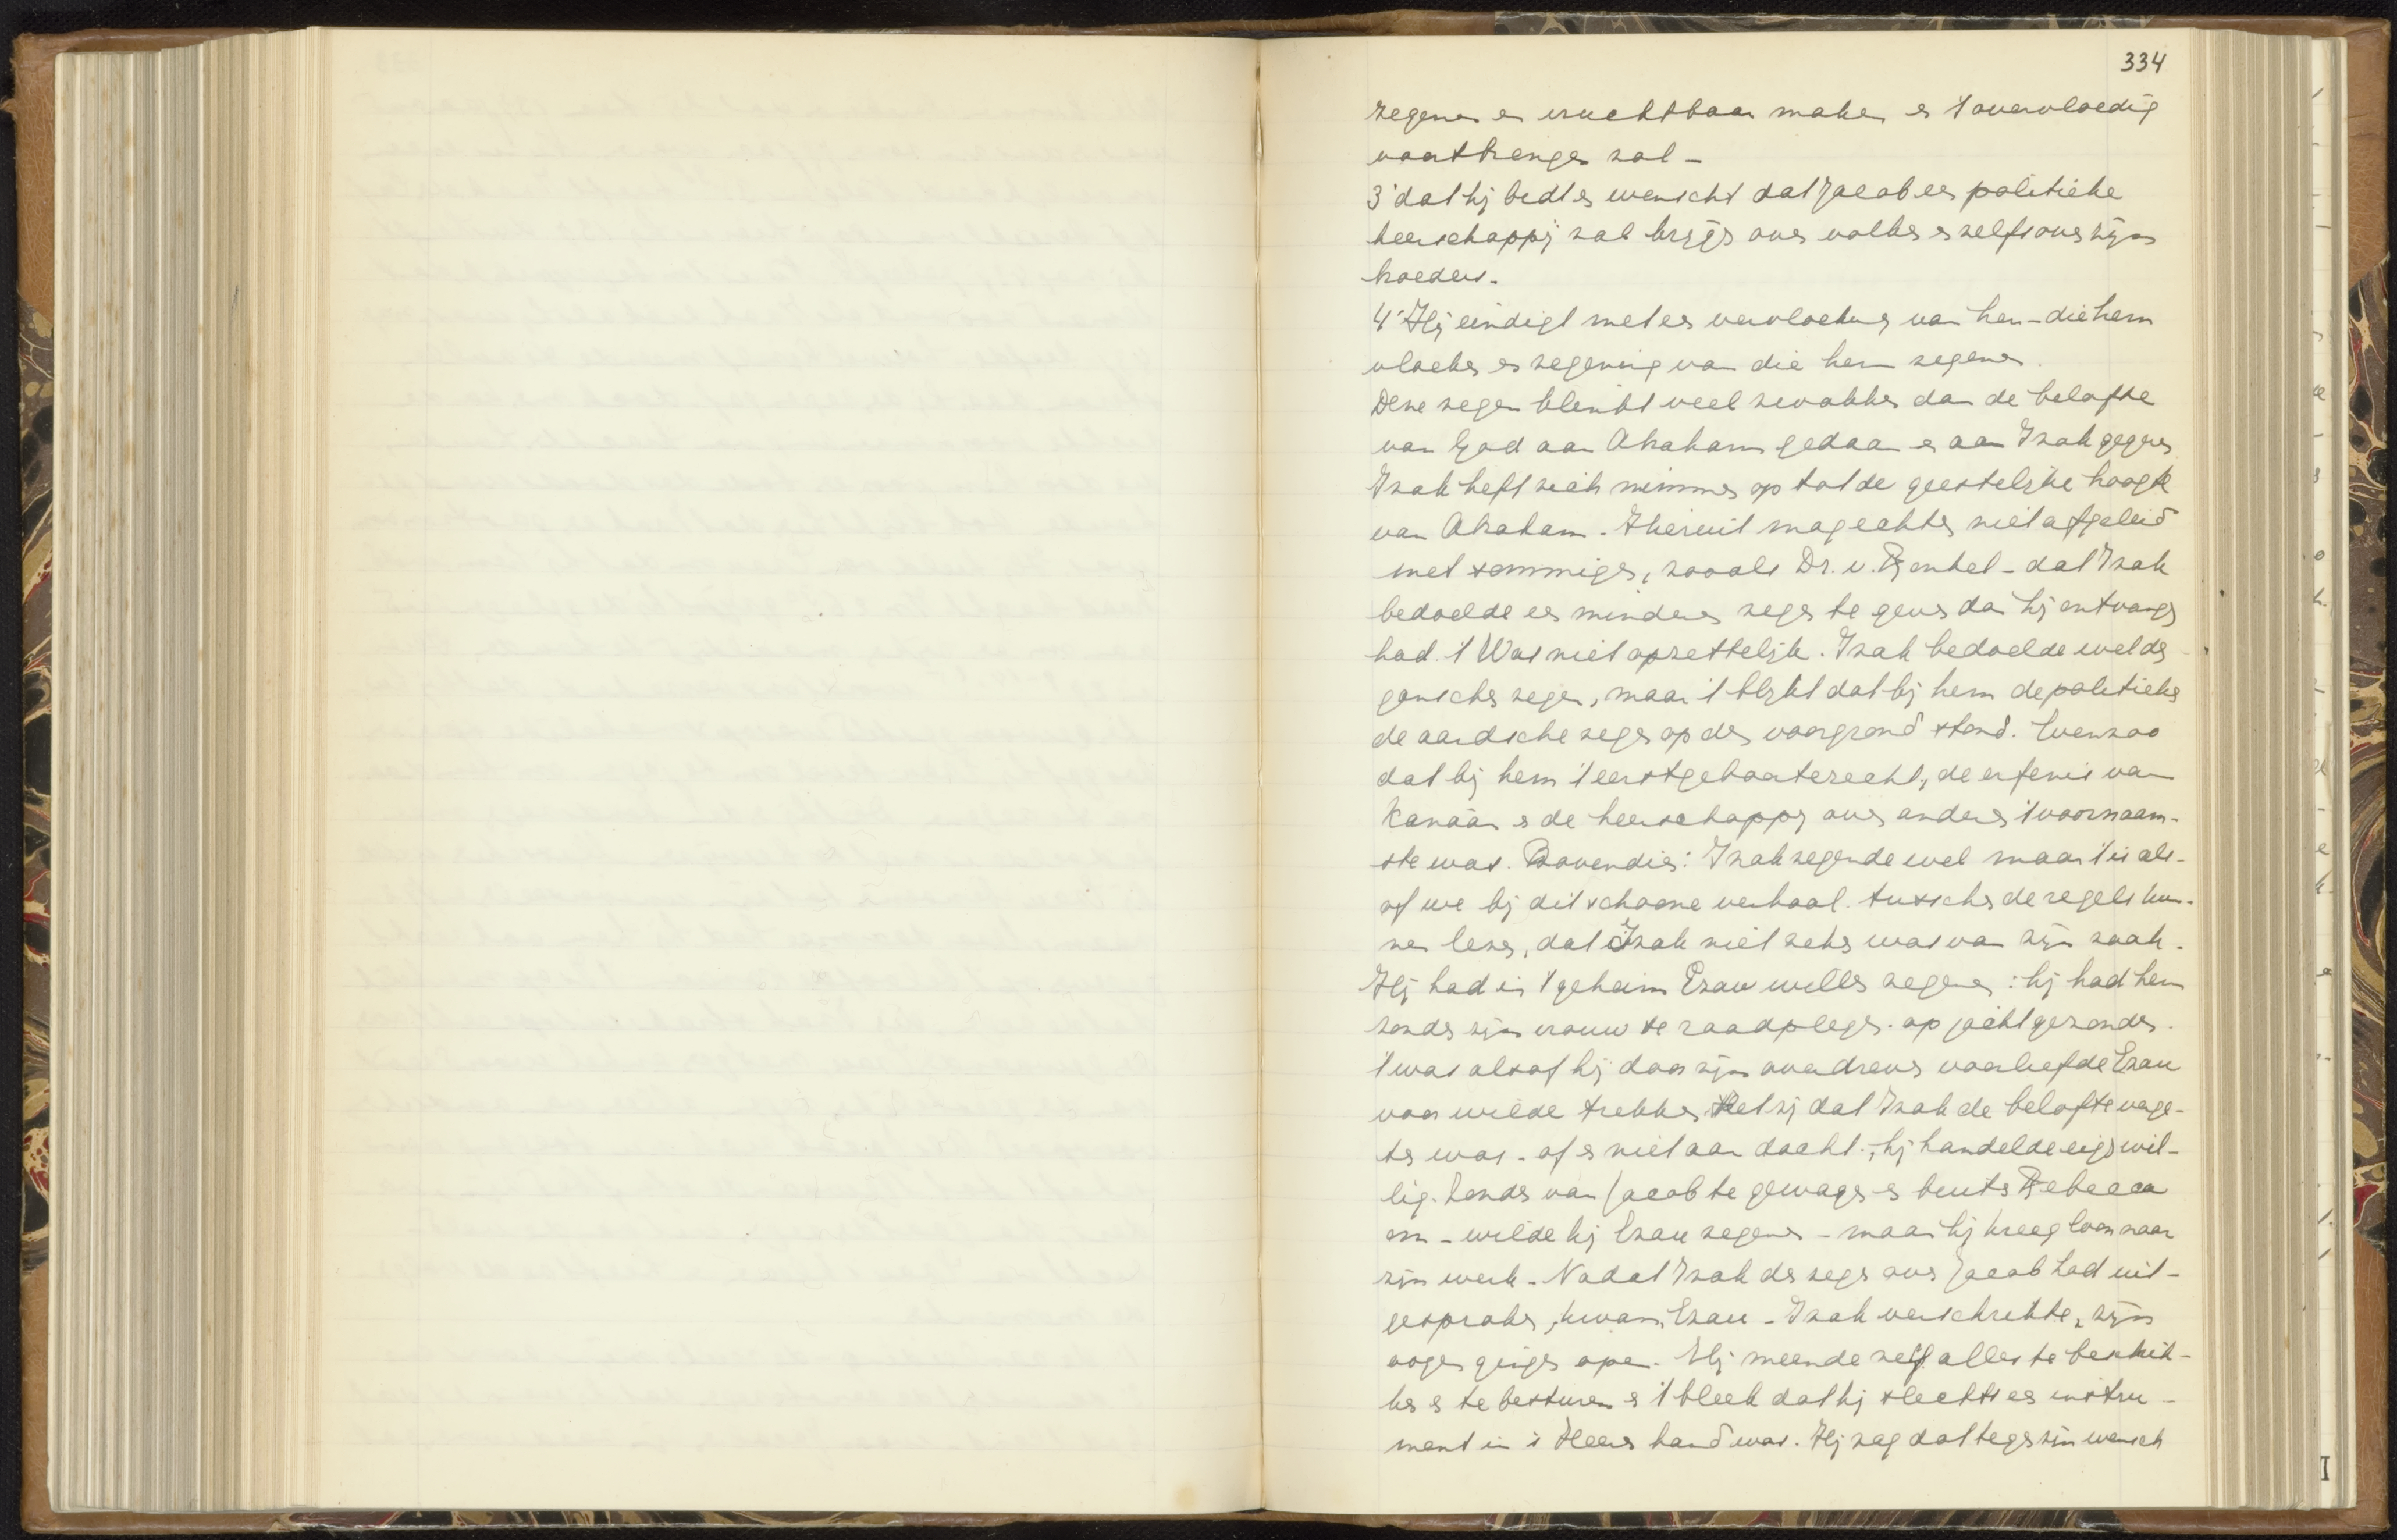 334
zegenen en vruchtbaar maken en 't overvloedig
voortbrengen zal -
3° dat hij bidt en wenscht dat Jacob een politieke
heerschappij zal krijgen over volken en zelfs over zijn
broeders.
4° Hij eindigt met een vervloeking van hen - die hem
vloeken en zegening van die hem zegenen.
Deze zegen klinkt veel zwakker dan de belofte
van God aan Abraham gedaan en aan Izak gegeven
Izak heft zich nimmer op tot de geestelijke hoogte
van Abraham. Hieruit mag echter niet afgeleid
met sommigen, zooals Dr. v. Ronkel - dat Izak
bedoelde een mindere zegen te geven dan hij ontvangen
had. 't Was niet opzettelijk. Izak bedoelde wel den
ganschen zegen, maar 't blijkt dat bij hem de politieke
de aardsche zegen op den voorgrond stond. Evenzoo
dat bij hem 't eerstgeboorterecht, de erfenis van
Kanaän en de heerschappij over anderen 't voornaam-
ste was. Bovendien: Izak zegende wel maar 't is als-
of we bij dit schoone verhaal tusschen de regels kun-
nen lezen, dat Izak niet zeker was van zijn zaak.
Hij had in 't geheim Ezau willen zegenen: hij had hem
zonder zijn vrouw te raadplegen op jacht gezonden.
't was alsof hij door zijn overdreven voorliefde Ezau
voor wilde trekken Hetzij dat Izak de belofte verge-
ten was - of er niet aan dacht; hij handelde eigenwil-
lig. Zonder van Jacob te gewagen en buiten Rebecca
om - wilde hij Ezau zegenen - maar hij kreeg loon naar
zijn werk. Nadat Izak den zegen over Jacob had uit-
gesproken, kwam Ezau - Izak verschrikte, zijn
oogen gingen open. Hij meende zelf alles te beschik-
ken en te besturen en 't bleek dat hij slechts een instru-
ment in 's Heeren hand was. Hij zag dat tegen zijn wensch